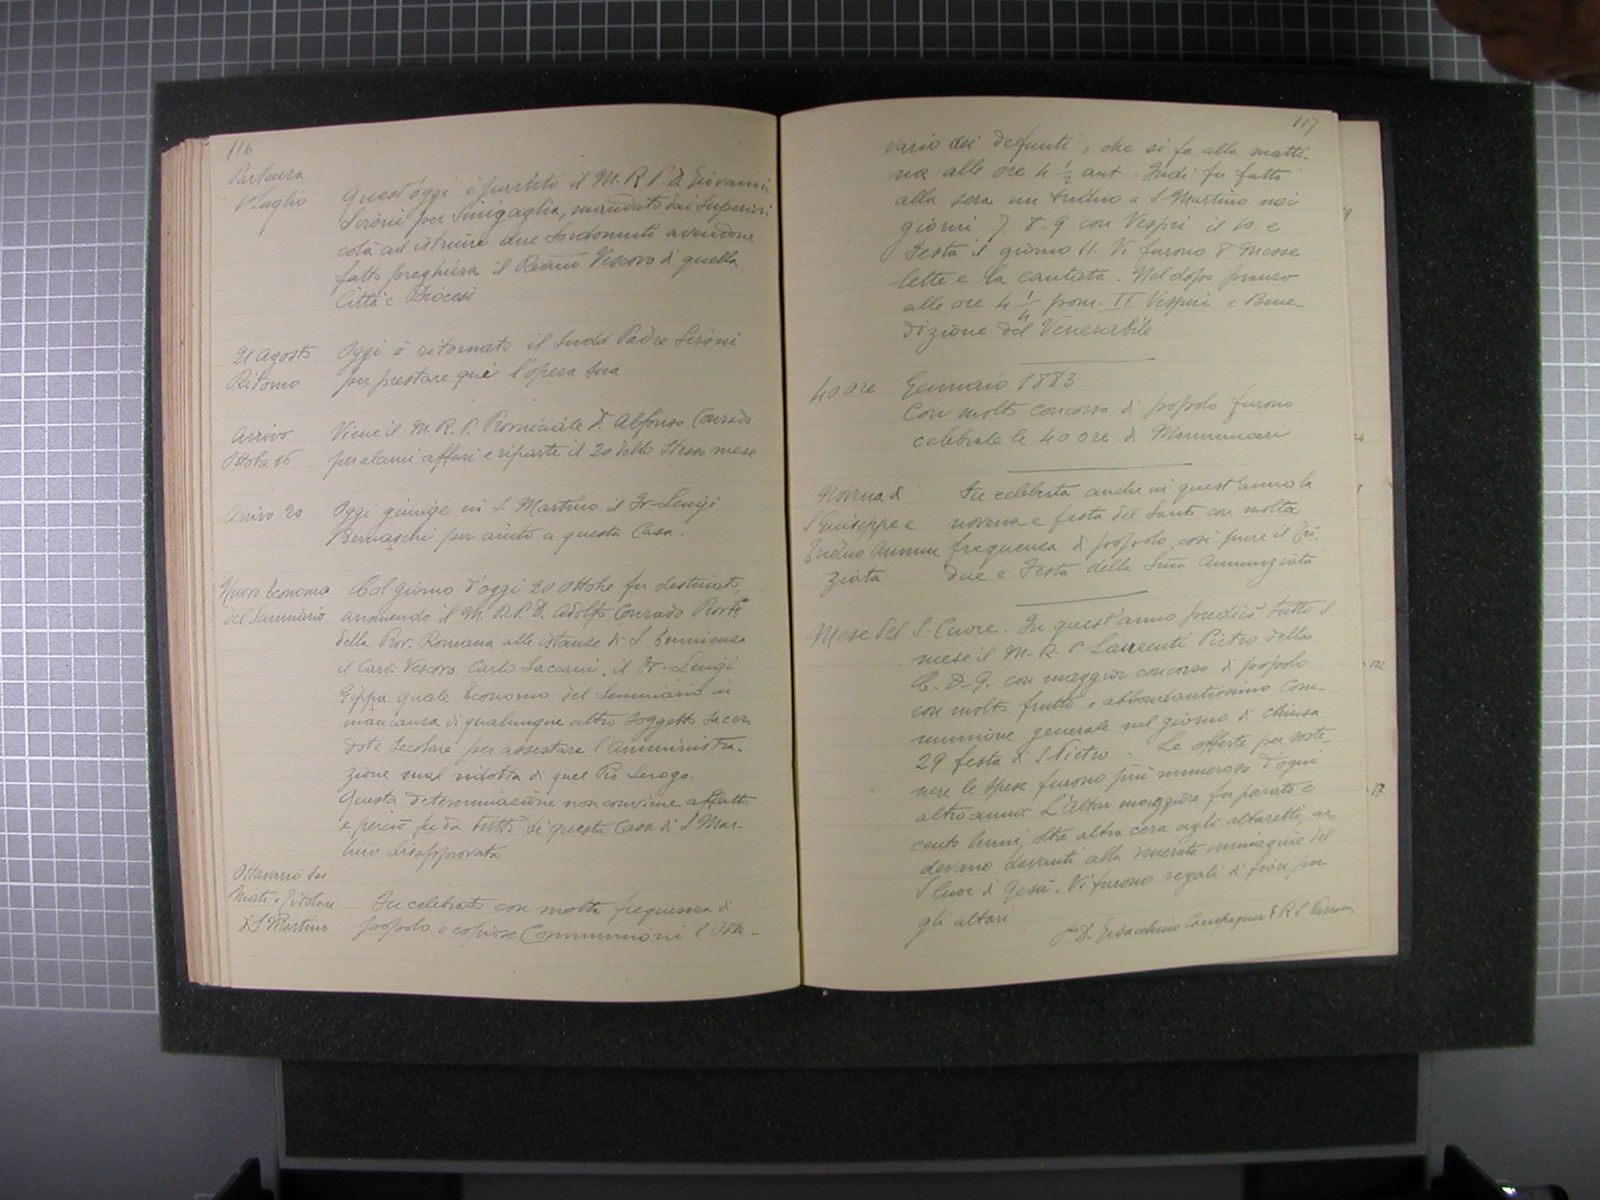 116
Partenza
1 Luglio
Quest'oggi è partito il M. R. P. D. Giovanni
Sironi per Sinigaglia, mandato dai Superiori
colà ad istruire due Sordomuti avendone
fatto preghiera il Rev.mo Vescovo di quella
Città e Diocesi
21 Agosto
Ritorno
Oggi è ritornato il Sudd. Padre Sironi
per prestare qui l'opera sua
Arrivo
Ottobre 16
Viene il M. R. P. Provinciale D. Alfonso Conrado
per alcuni affari e riparte il 20 dello stesso mese
Arrivo 20
Oggi giunge in S. Martino il Fr. Luigi
Bernaschi per aiuto a questa Casa.
Nuovo Economo
del Seminario
Col giorno d'oggi 20 Ottobre fu destinato,
annuendo il M. R. P. D. Adolfo Conrado
della Prov. Romana alle istanze di S. Eminenza
il Card. Vescovo Carlo Sacconi, il Fr. Luigi
Gippa quale Economo del Seminario in
mancanza di qualunque altro soggetto Sacer
dote Secolare per assestare l'Amministra-
zione mal ridotta di quel Pio Luogo.
Questa determinazione non conviene affatto
e perciò fu da tutti di questa Casa di S. Mar-
tino disapprovata
Ottavario dei
Morti e Titolare
di S. Martino
Fu celebrato con molta frequenza di
popolo e copiose Communioni l'Otta-
117
vario dei defunti, che si fa alla matti-
na alle ore 4 1/2 ant. Indi fu fatto
alla sera un triduo a S. Martino nei
giorni 7. 8. 9 con Vespri il 10 e
Festa il giorno 11. Vi furono 8 Messe
lette e la cantata. Nel dopo pranzo
alle ore 4 1/4 pom. II Vesperi e Bene-
dizione del Venerabile
40 ore
Gennaio 1883
Con molto concorso di popolo furono
celebrate le 40 ore di
Novena di
S Giuseppe e
Triduo Annun
ziata
Fu celebrata anche in quest'anno la
novena e festa del Santo con molta
frequenza di popolo, così pure il Tri-
duo e Festa della SSma Annunziata
Mese del S. Cuore. In quest'anno predicò tutto il
mese il M. R. P. Laurenti Pietro della
C. D. G. con maggior concorso di popolo
con molto frutto e abbondantissima Com-
munione generale nel giorno di chiusa
29 festa di S Pietro. Le offerte per soste-
nere le spese furono più numerose d'ogni
altro anno. L'Altar maggiore fu parato e
cento lumi, oltre altra cera agli altaretti, ar-
devano davanti alla venerata immagine del
S Cuor di Gesù. Vi furono regali di fiori per
gli altari
D. Gioacchino Campagner